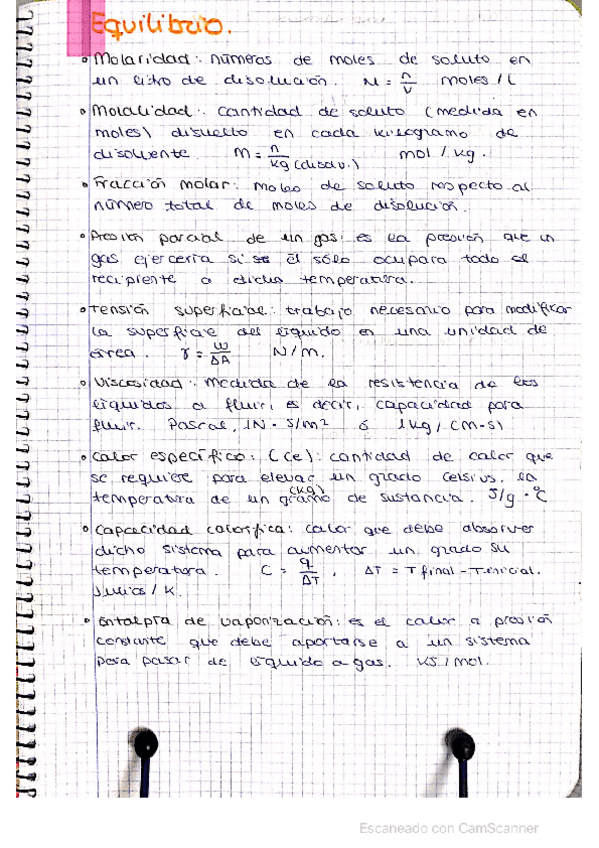 Equilibrio.
• Molaridad: números de moles de soluto en
un litro de disolución. M = n/V moles/L
• Molalidad: cantidad de soluto (medida en
moles) disuelto en cada kilogramo de
disolvente. m = n/kg(disolv.) mol/kg.
• Fracción molar: moles de soluto respecto al
número total de moles de disolución.
• Presión parcial de un gas: es la presión que un
gas ejercería si él sólo ocupara todo el
recipiente a dicha temperatura.
• Tensión superficial: trabajo necesario para modificar
la superficie del líquido en una unidad de
área. γ = W/ΔA N/m.
• Viscosidad: medida de la resistencia de los
líquidos a fluir, es decir, capacidad para
fluir. Pascal, 1N·s/m² ó 1kg/(m·s)
• Calor específico: (Ce): cantidad de calor que
se requiere para elevar un grado Celsius, la
temperatura de un gramo (kg) de sustancia. J/g·°C
• Capacidad calorífica: calor que debe absorver
dicho sistema para aumentar un grado su
temperatura. C = q/ΔT, ΔT = T final - T inicial.
Julios/K.
• Entalpía de vaporización: es el calor a presión
constante que debe aportarse a un sistema
para pasar de líquido a gas. KJ/mol.
Escaneado con CamScanner